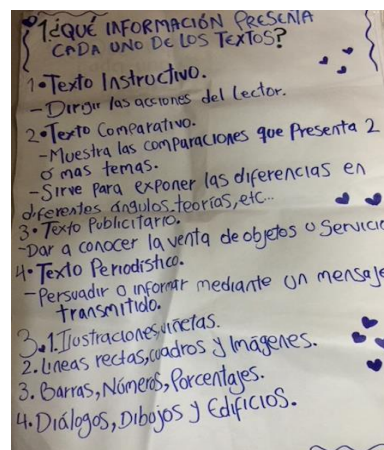 1¿QUÉ INFORMACIÓN PRESENTA
CADA UNO DE LOS TEXTOS?
1•Texto Instructivo.
-Dirigir las acciones del lector.
2•Texto Comparativo.
-Muestra las comparaciones que Presenta 2
o mas temas.
-Sirve para exponer las diferencias en
diferentes angulos, teorías, etc...
3•Texto Publicitario.
-Dar a conocer la venta de objetos o Servicio
4•Texto Periodístico.
-Persuadir o informar mediante un mensaje
transmitido.
3.1.Ilustraciones, viñetas.
2.lineas rectas, cuadros y Imágenes.
3. Barras, Números, Porcentajes.
4.Diálogos, Dibujos y Edificios.